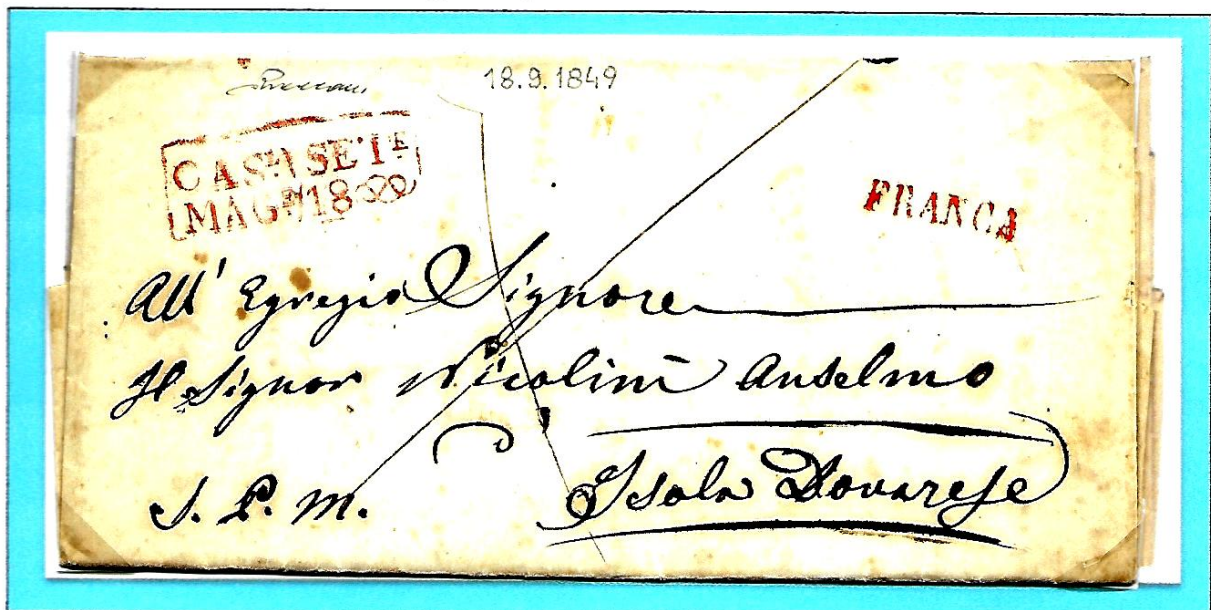 18.9.1849
CAS.L SE.TE
MAG.RE 18
FRANCA
All' Egregio Signore
Il Signor Nicolini Anselmo
S. P. M.
Isola Dovarese